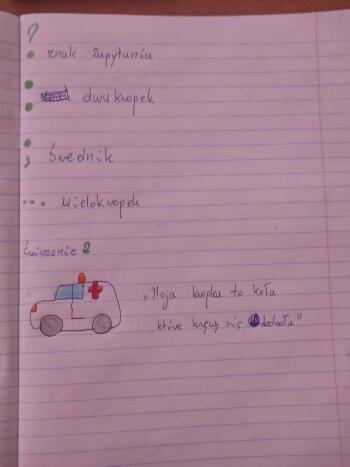 ? znak zapytania
: dwukropek
; Średnik
... Wielokropek
Ćwiczenie 2
„Moja kropka to koła
które kręcą się dookoła"